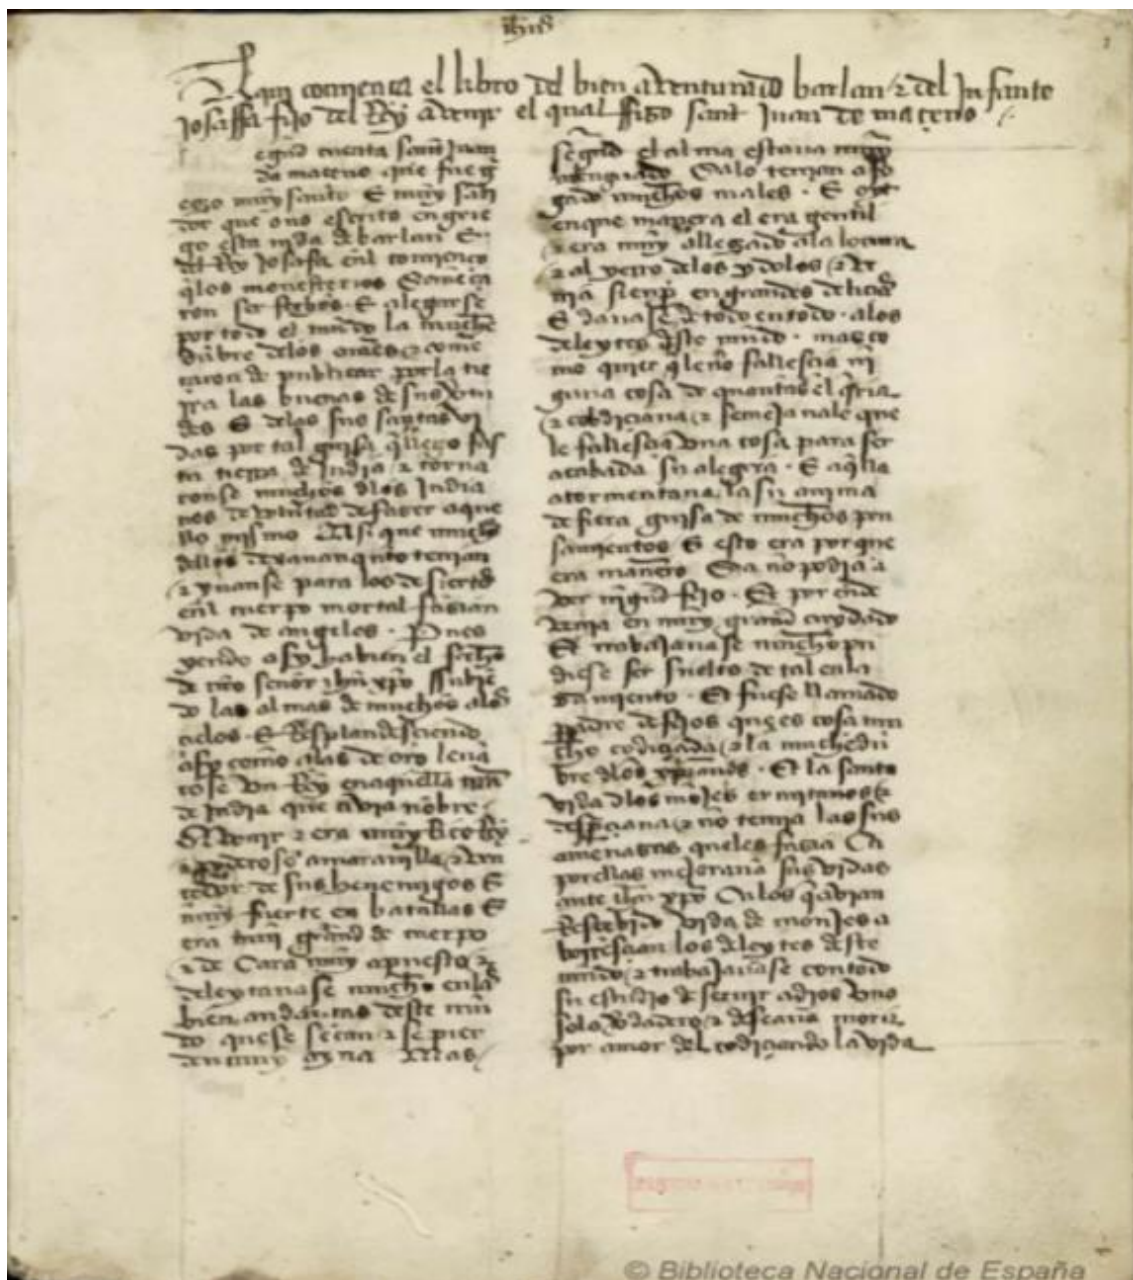 ihus
Aqui comiença el libro del bien aventurado barlan z del Infante
Josaffa fijo del Rey avenir el qual ffizo sant Juan de maçeno
egund cuenta sant Juan
de maceno que fue
muy santo E muy
que ouo escrito en grie
go esta vida de barlan E
del Rey Josafa enl comienço
qlos monesterios Començā
ron ser fechos E alegarse
por todo el mundo la muche
dūbre delos omēs z comē
çaron de publicar por la tie
rra las buenas de sus vtu
des E delas sus santas vi
das por tal guisa q̄ llego fas
ta tierra de India z torna
ronse muchos dlos India
nos de voluntad de fazer aque
llo mismo Asi que muchos
dellos dexauan quanto tenian
z yuanse para los desiertos
enl cuerpo mortal fazian
vida de angeles . Pues
yendo asy bien el fecho
de nro señor ihu xpo Subiē
do las almas de muchos alos
cielos . E Resplandesciendo
asy como alas de oro leuā
tose vn Rey en aquella trra
de India que auia nōbre
Auenir z era muy Rico Rey
z poderoso a marauilla z ven
cedor de sus henemigos E
muy fuerte en batallas E
era muy grand de cuerpo
z de Cara muy apuesto z
deleytauase mucho enlas
bien andanças deste mū
do que se secan z se pier
den muy ayna Mas
segund el alma estaua muy
menguado Ca lo tenian afo
gado muchos males . E
en que manera el era gentil
z era muy allegado ala locura
z al yerro delos ydolos z
uia sienpre en grandes deliçias
E dauase de todo en todo . alos
deleytes deste mundo . mas co
mo quier q̄ leño fallescia ni
guna cosa de quantas el q̄ria
z cobdiciaua z semejauale que
le fallescia vna cosa para ser
acabada su alegria . E aq̄lla
atormentaua la su anima
de fiera guisa de muchos pen
samientos E esto era por que
era mañero Ca no podia a
ver ningund fijo . E por ende
venia en muy grand cuydado
E trabajauase mucho pu
diese ser suelto de tal enla
zamiento . E fuese llamado
padre de fijos que es cosa mu
cho codiçiada z la muchedū
bre dlos xpianos . E la santa
vida dlos mōjes ermitanos
despreciaua z no temia las sus
amenazas queles fazia Ca
por ellas mejorauā sus vidas
ante ihu xpo Ca los q̄ avian
Resçebido vida de monjes a
borresçian los deleytes deste
mundo z trabajauāse con todo
su estudio de seruir a dios vno
solo vdadero z deseauā morir
por amor del codiçiando la vida
© Biblioteca Nacional de España